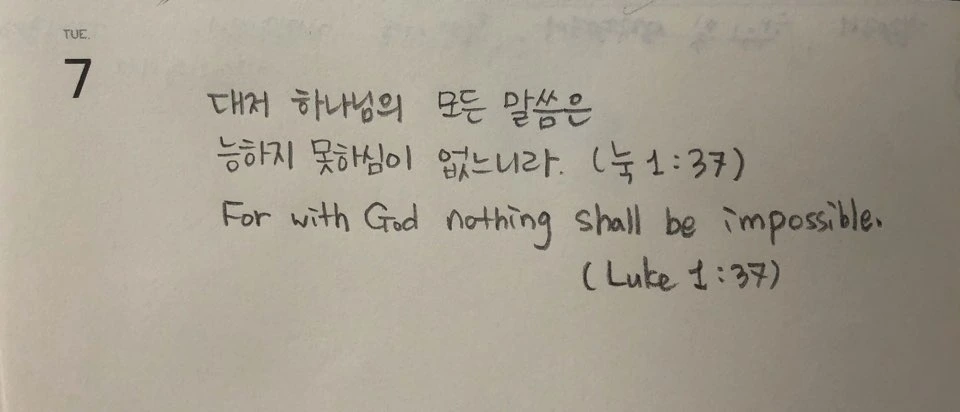 TUE.
7
대저 하나님의 모든 말씀은
능하지 못하심이 없느니라. (눅 1:37)
For with God nothing shall be impossible.
(Luke 1:37)